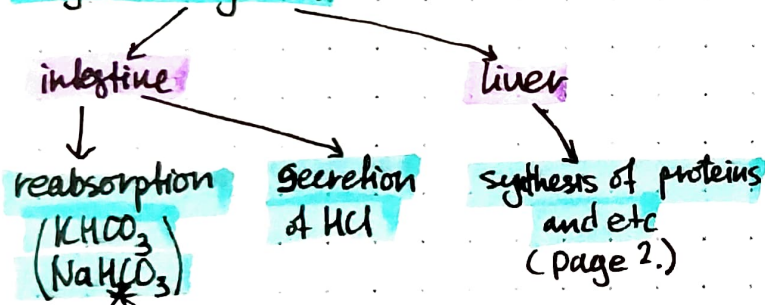 intestine
liver
reabsorption
(KHCO3
NaHCO3)
secretion
of HCl
synthesis of proteins
and etc
(page 2.)